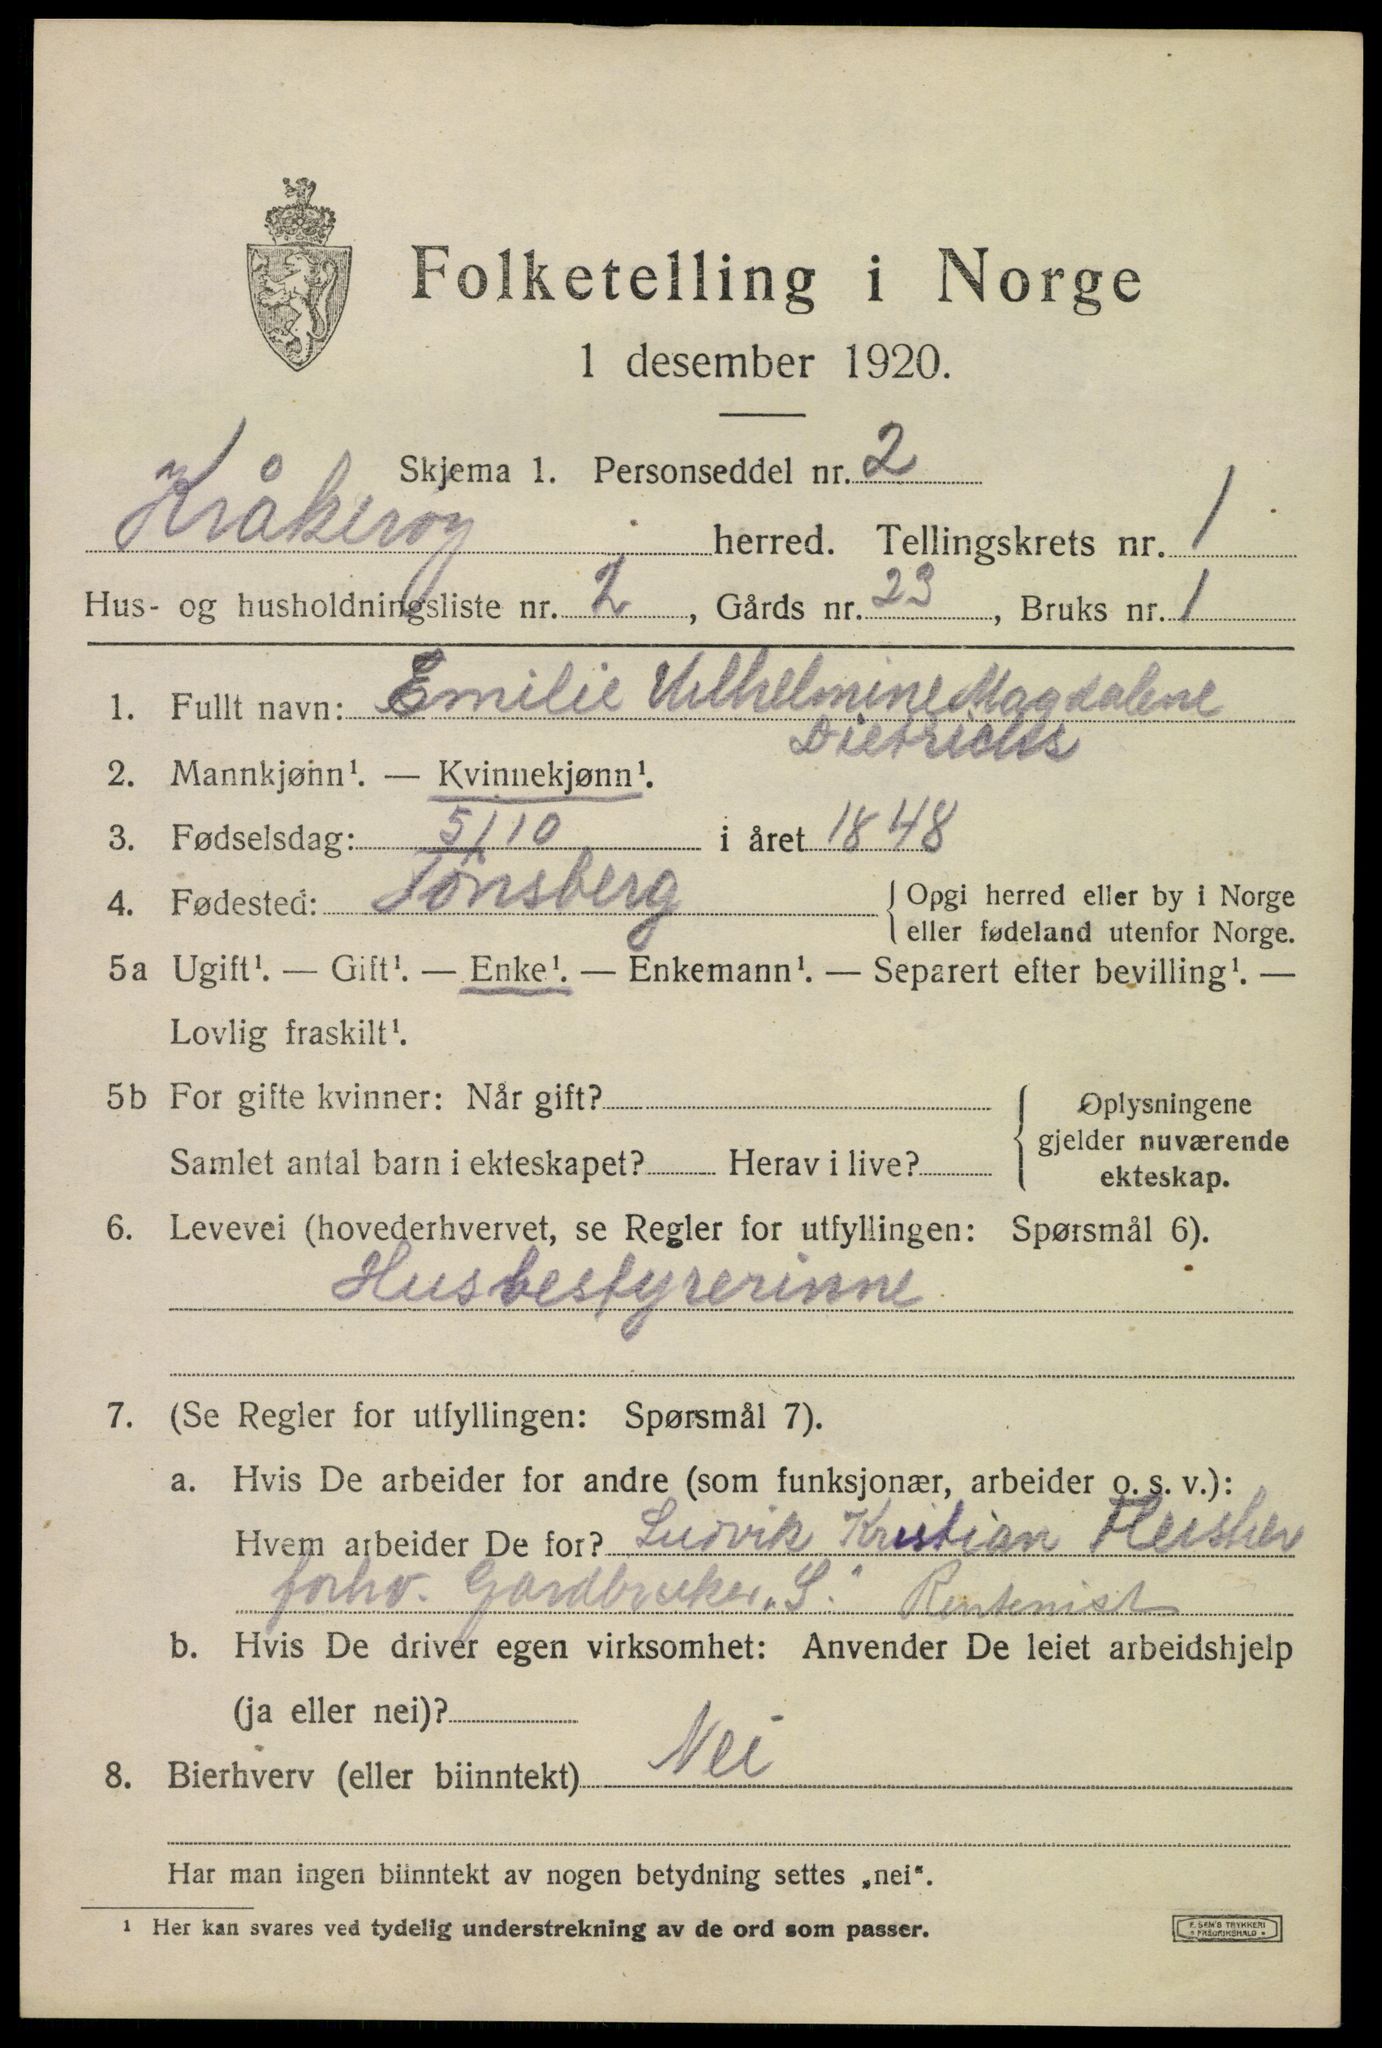 Folketelling i Norge
1 desember 1920.
Skjema 1. Personseddel nr. 2
Kråkerøy herred. Tellingskrets nr. 1
Hus- og husholdningsliste nr. 2, Gårds nr. 23, Bruks nr. 1
1. Fullt navn: Emilie Vilhelmine Magdalene
Dietrichs
2. Mannkjønn¹. — Kvinnekjønn¹.
3. Fødselsdag: 5/10 i året 1848
4. Fødested: Tönsberg { Opgi herred eller by i Norge
eller fødeland utenfor Norge.
5a Ugift¹. — Gift¹. — Enke¹. — Enkemann¹. — Separert efter bevilling¹. —
Lovlig fraskilt¹.
5b For gifte kvinner: Når gift?
Samlet antal barn i ekteskapet? Herav i live?
Oplysningene
gjelder nuværende
ekteskap.
6. Levevei (hovederhvervet, se Regler for utfyllingen: Spørsmål 6).
Husbestyrerinne
7. (Se Regler for utfyllingen: Spørsmål 7).
a. Hvis De arbeider for andre (som funksjonær, arbeider o. s. v.):
Hvem arbeider De for? Ludvik Kristian
forhv. Gardbruker „S." Rentenist
b. Hvis De driver egen virksomhet: Anvender De leiet arbeidshjelp
(ja eller nei)?
8. Bierhverv (eller biinntekt) Nei
Har man ingen biinntekt av nogen betydning settes „nei“.
¹ Her kan svares ved tydelig understrekning av de ord som passer.
E. SEM'S TRYKKERI
* FREDRIKSHALD *